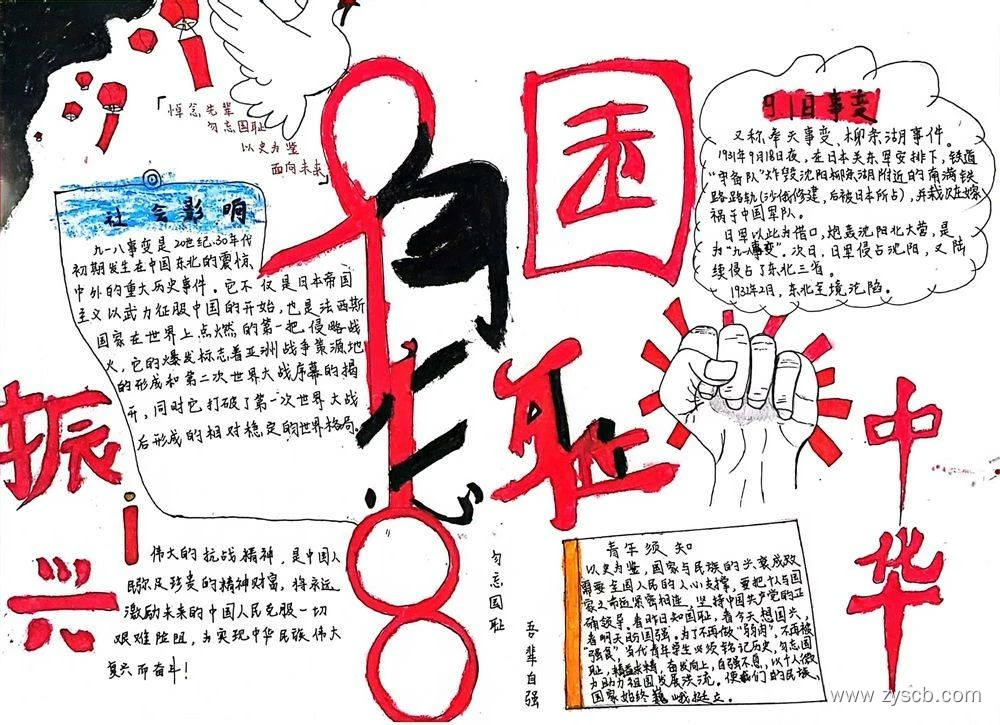 「悼念先辈
勿忘国耻
以史为鉴
面向未来」
勿忘
国耻
振兴
中华
社会影响
九一八事变是20世纪30年代
初期发生在中国东北的震惊
中外的重大历史事件。它不仅是日本帝国
主义以武力征服中国的开始,也是法西斯
国家在世界上点燃的第一把侵略战
火,它的爆发标志着亚洲战争策源地
的形成和第二次世界大战序幕的揭
开,同时它打破了第一次世界大战
后形成的相对稳定的世界格局。
事变
又称奉天事变、柳条湖事件。
1931年9月18日夜,在日本关东军安排下,铁道
“守备队”炸毁沈阳柳条湖附近的南满铁
路路轨(沙俄修建,后被日本所占),并栽赃嫁
祸于中国军队。
日军以此为借口,炮轰沈阳北大营,是
为“九一八事变”。次日,日军侵占沈阳,又陆
续侵占了东北三省。
1932年2月,东北全境沦陷。
伟大的抗战精神,是中国人
民弥足珍贵的精神财富,将永远
激励未来的中国人民克服一切
艰难险阻,为实现中华民族伟大
复兴而奋斗!
勿忘国耻
吾辈自强
青年须知
以史为鉴,国家与民族的兴衰成败
需要全国人民的人心支撑,要把个人与国
家之命运紧密相连,坚持中国共产党的正
确领导。看昨日知国耻,看今天想国兴,
看明天盼国强。为了不再做“弱肉”,不再被
“强食”,当代青年学生必须铭记历史,勿忘国
耻,精益求精,奋发向上,自强不息,以个人微
力助力祖国发展洪流。使我们的民族、
国家始终巍峨挺立。
www.zyscb.com